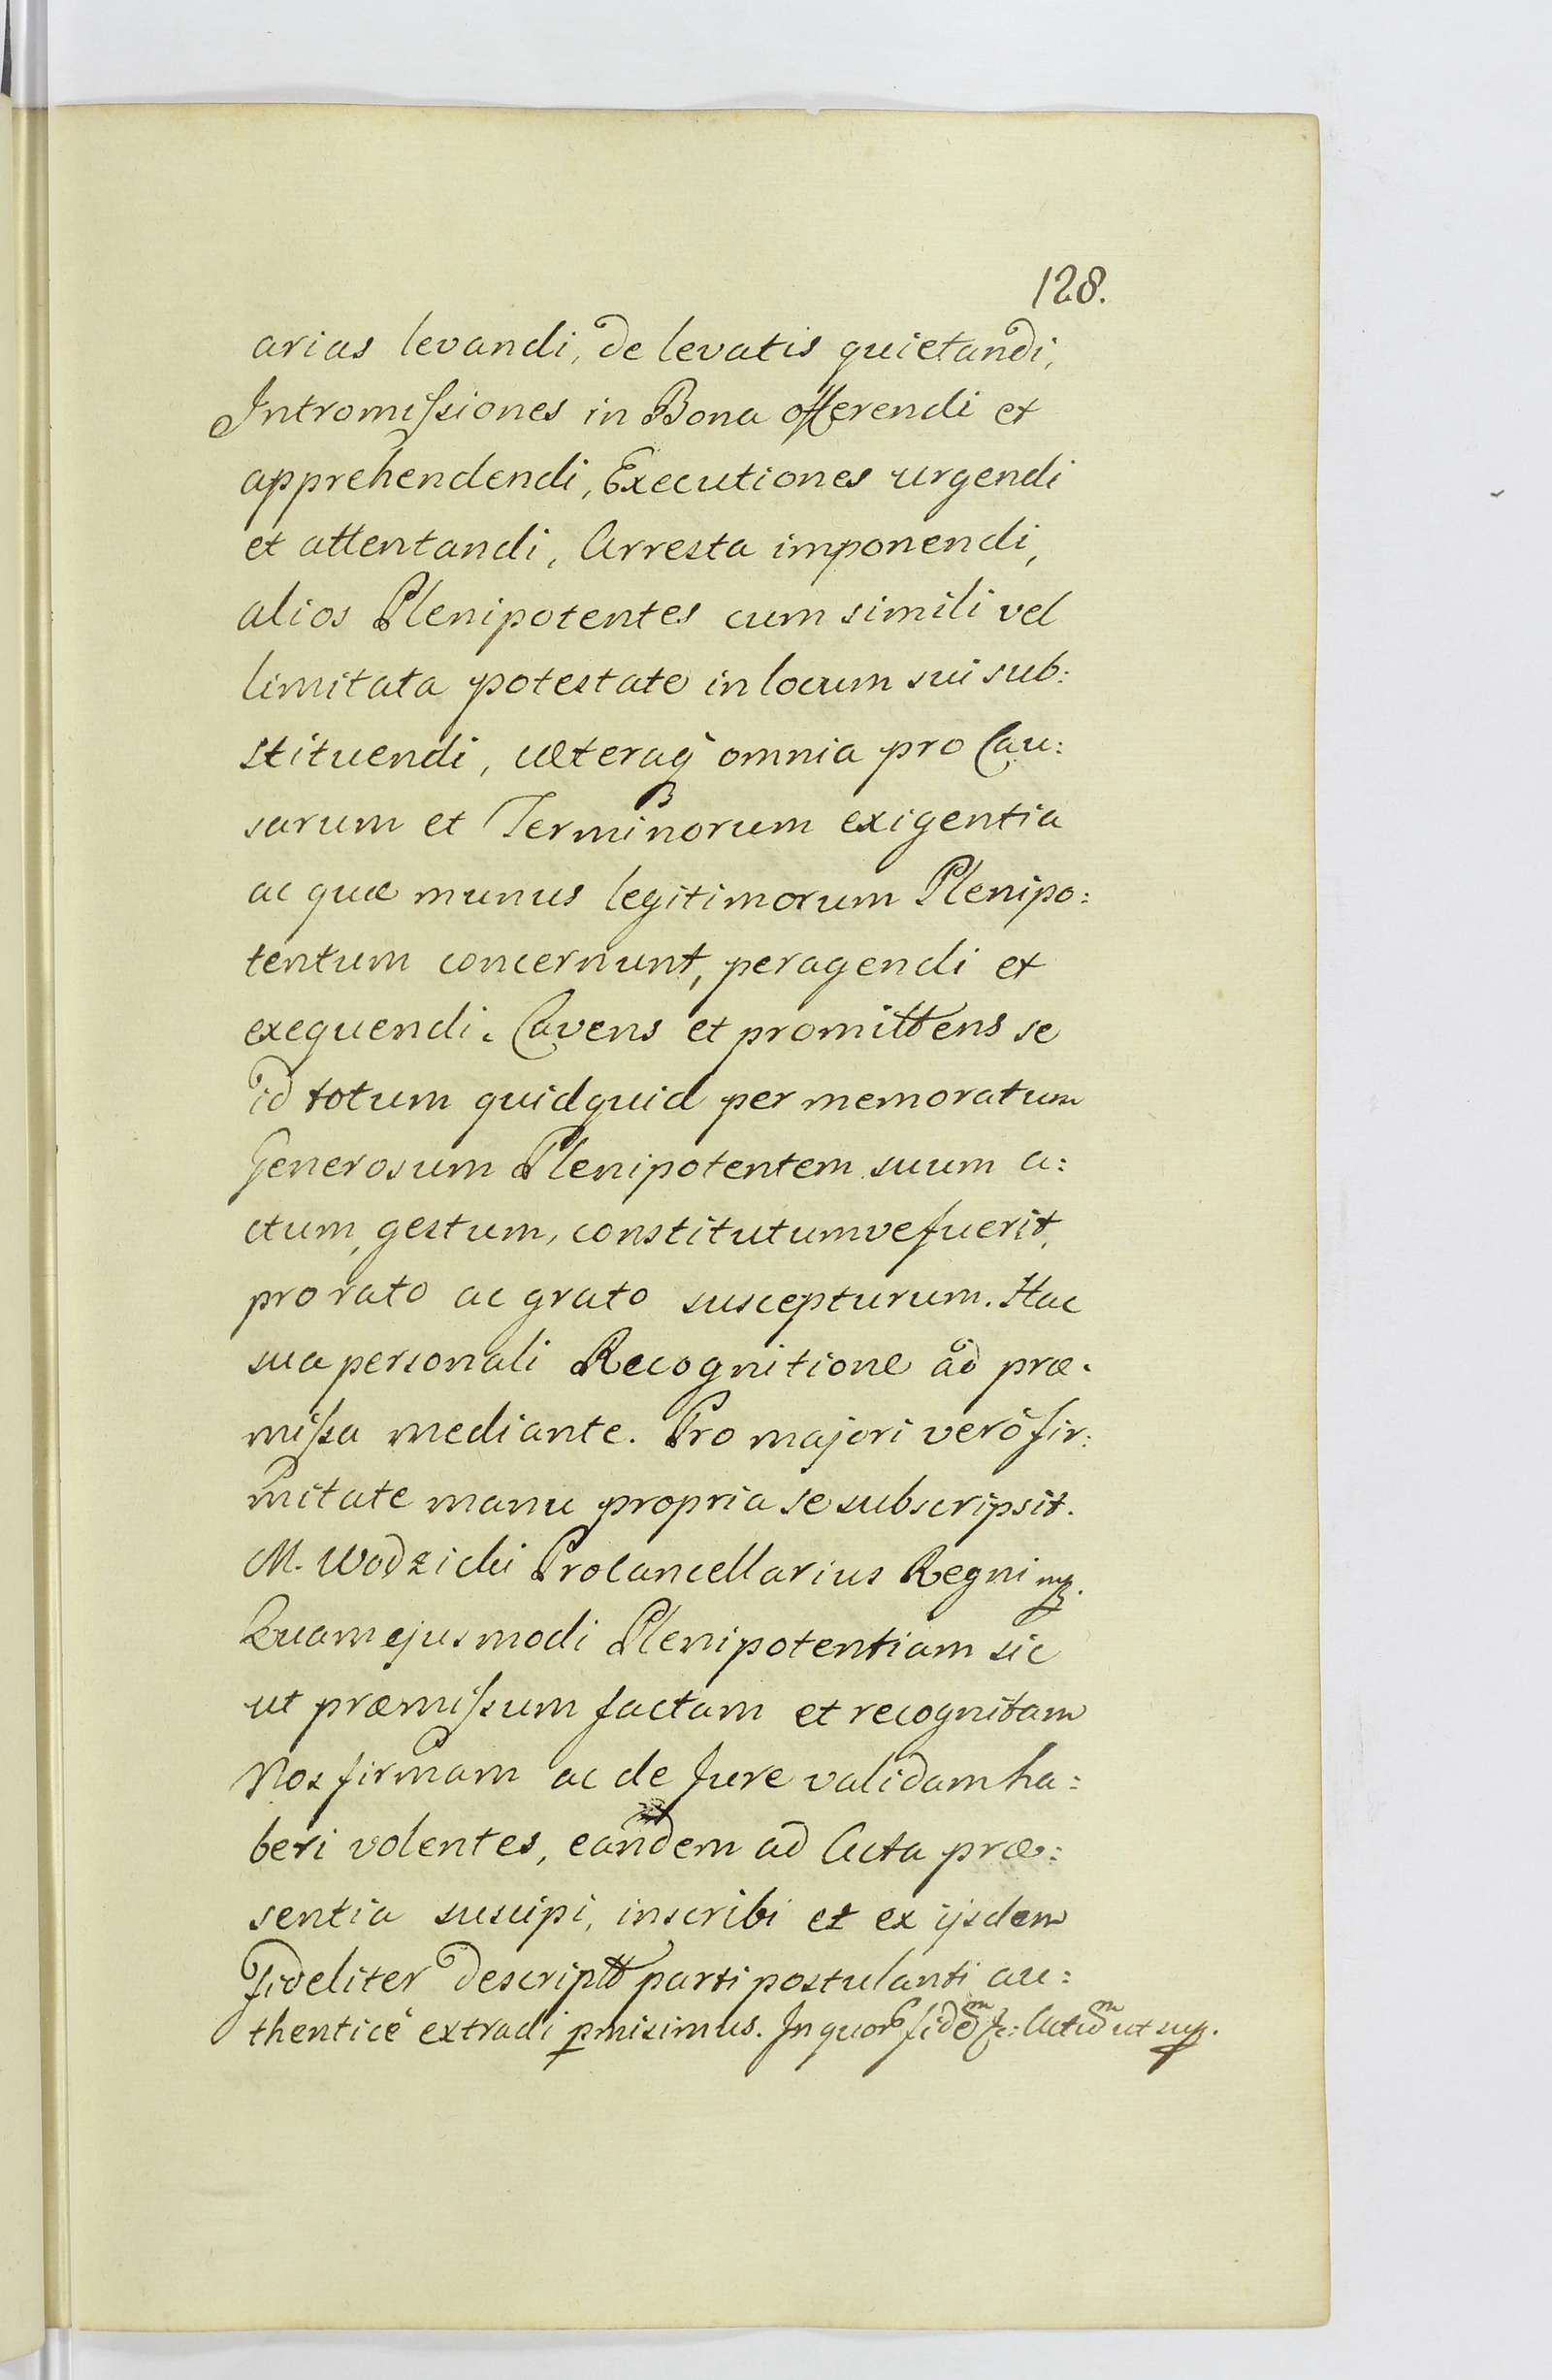 128.
arias levandi, de levatis quietandi,
Intromissiones in Bona offerendi et
apprehendendi, Executiones urgendi
et attentandi, Arresta imponendi,
alios Plenipotentes cum simili vel
limitata potestate in locum sui sub:
stituendi, cæteraq omnia pro Cau:
sarum et Terminorum exigentia
ac quæ munus legitimorum Plenipo:
tentum concernunt, peragendi et
exequendi. Cavens et promittens se
id totum quidquid per memoratum
Generosum Plenipotentem suum a:
ctum, gestum, constitutumve fuerit,
pro rato ac grato suscepturum. Hac
sua personali Recognitione ad præ:
missa mediante. Pro majori verò fir:
mitate manu propria se subscripsit.
M. Wodzicki Procancellarius Regni mp.
Quam ejusmodi Plenipotentiam sic
ut præmissum factam et recognitam
Nos firmam ac de Jure validam ha:
beri volentes, eandem ad Acta præ:
sentia suscipi, inscribi et ex ijsdem
fideliter descriptt parti postulanti au:
thenticè extradi pmisimus. In quor fidem &c: Actum ut sup.